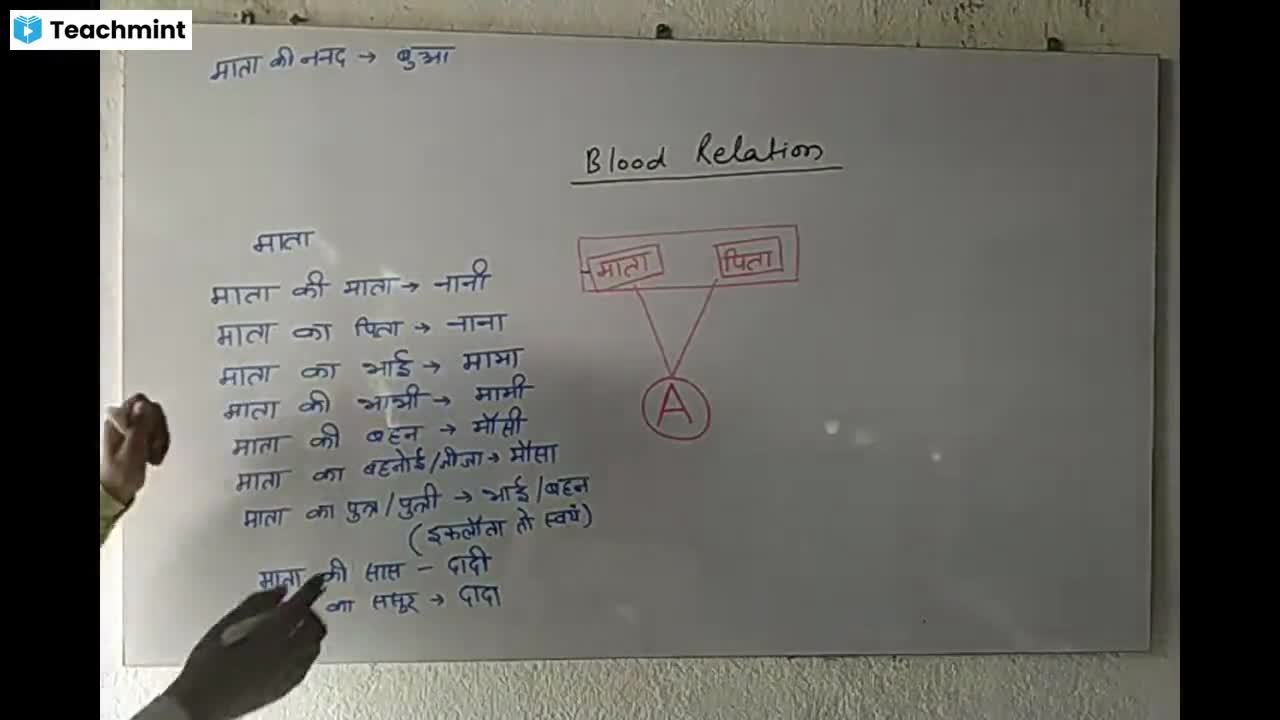 Teachmint
माता की ननद → बुआ
Blood Relation
माता
माता की माता → नानी
माता का पिता → नाना
माता का भाई → मामा
माता की भाभी → मामी
माता की बहन → मौसी
माता का बहनोई/जीजा → मौसा
माता का पुत्र/पुत्री → भाई/बहन
(इकलौता तो स्वयं)
माता की सास - दादी
का ससुर → दादा
माता पिता
A